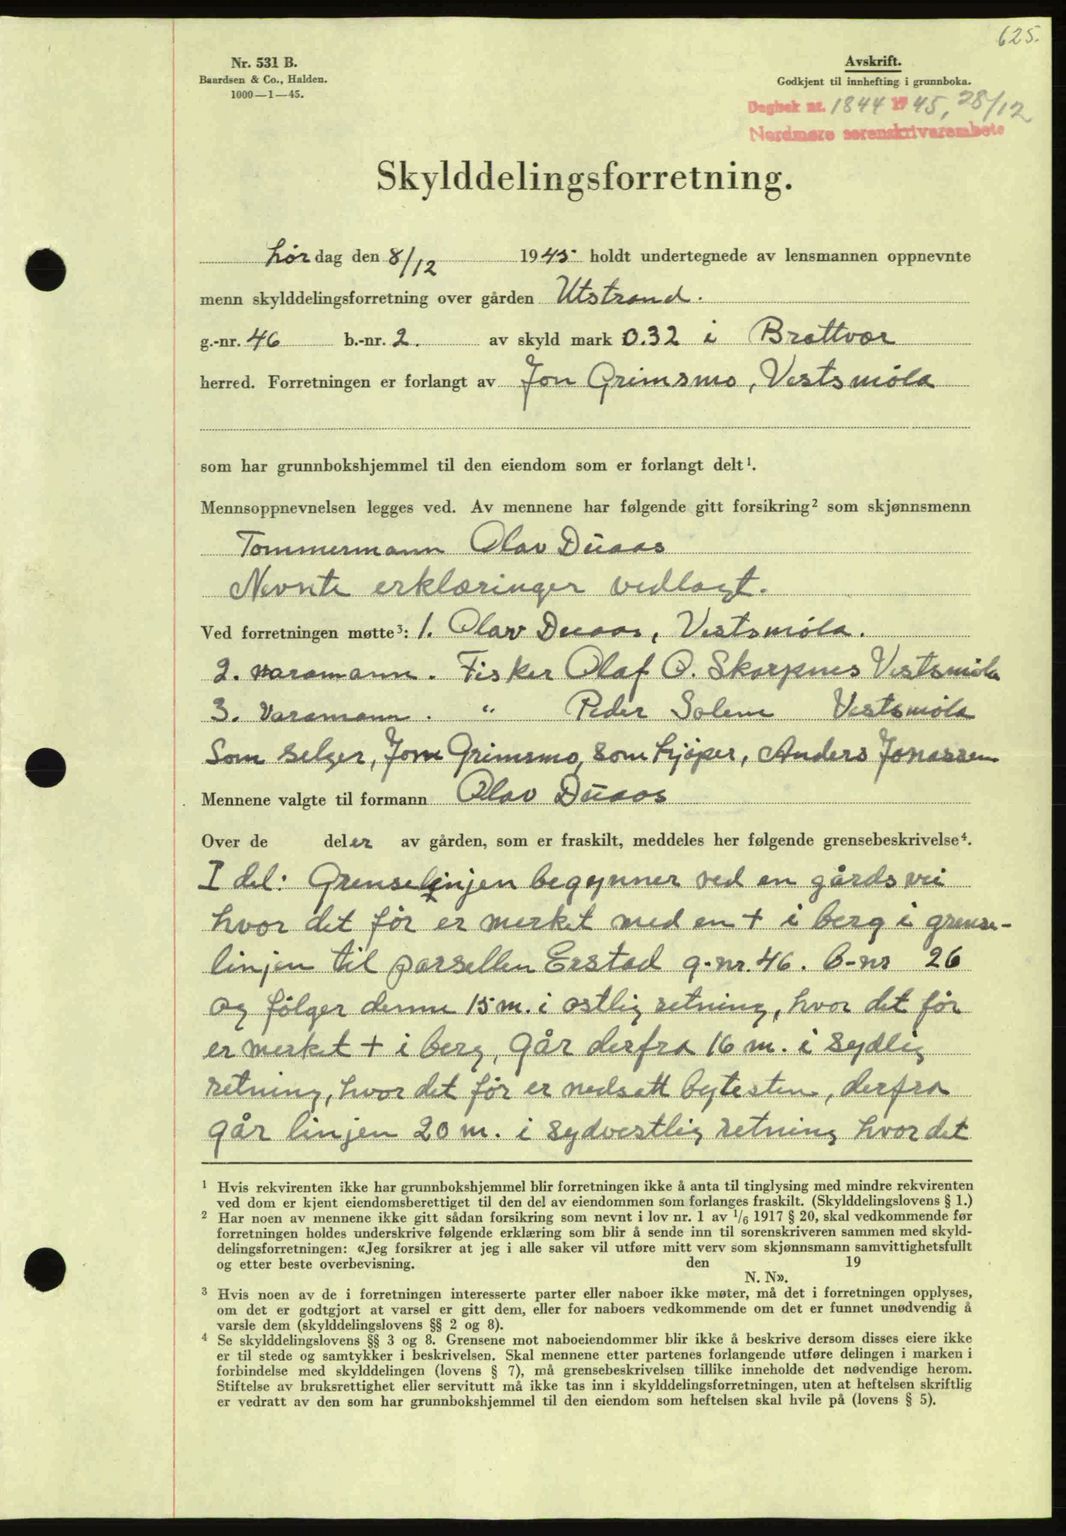 625.
Nr. 531 B.
Baardsen & Co., Halden.
1000—1—45.
Avskrift.
Godkjent til innhefting i grunnboka.
Dagbok nr. 1844 1945, 28/12
Nordmøre sorenskrivarembete
Skylddelingsforretning.
Lørdag den 8/12 1945 holdt undertegnede av lensmannen oppnevnte
menn skylddelingsforretning over gården Utstrand.
g.-nr. 46 b.-nr. 2. av skyld mark 0.32 i Brattvær
herred. Forretningen er forlangt av Jon Grimsmo, Vestsmøla
som har grunnbokshjemmel til den eiendom som er forlangt delt¹.
Mennsoppnevnelsen legges ved. Av mennene har følgende gitt forsikring² som skjønnsmenn
Tommermann Olav Duaas
Nevnte erklæringer vedlagt.
Ved forretningen møtte³: 1. Olav Duaas, Vestsmøla.
2. varamann. Fisker Olaf O. Skarpnes Vestsmøla
3. Varamann. " Peder Solem Vestsmøla
Som selger, Jon Grimsmo, som kjøper, Anders Jonassen
Mennene valgte til formann Olav Duaas
Over de deler av gården, som er fraskilt, meddeles her følgende grensebeskrivelse⁴.
I del: Grenselinjen begynner ved en gårdsvei
hvor det før er merket med en + i berg i grense-
linjen til parsellen Erstad g-nr. 46. b-nr 26
og følger denne 15 m. i ostlig retning, hvor det før
er merket + i berg, går derfra 16 m. i sydlig
retning, hvor det før er nedsatt bytesten, derfra
går linjen 20 m. i sydvestlig retning hvor det
¹ Hvis rekvirenten ikke har grunnbokshjemmel blir forretningen ikke å anta til tinglysing med mindre rekvirenten
ved dom er kjent eiendomsberettiget til den del av eiendommen som forlanges fraskilt. (Skylddelingslovens § 1.)
² Har noen av mennene ikke gitt sådan forsikring som nevnt i lov nr. 1 av 1/6 1917 § 20, skal vedkommende før
forretningen holdes underskrive følgende erklæring som blir å sende inn til sorenskriveren sammen med skyld-
delingsforretningen: «Jeg forsikrer at jeg i alle saker vil utføre mitt verv som skjønnsmann samvittighetsfullt
og etter beste overbevisning. den 19
N. N».
³ Hvis noen av de i forretningen interesserte parter eller naboer ikke møter, må det i forretningen opplyses,
om det er godtgjort at varsel er gitt dem, eller for naboers vedkommende om det er funnet unødvendig å
varsle dem (skylddelingslovens §§ 2 og 8).
⁴ Se skylddelingslovens §§ 3 og 8. Grensene mot naboeiendommer blir ikke å beskrive dersom disses eiere ikke
er til stede og samtykker i beskrivelsen. Skal mennene etter partenes forlangende utføre delingen i marken i
forbindelse med skylddelingen (lovens § 7), må grensebeskrivelsen tillike inneholde det nødvendige herom.
Stiftelse av bruksrettighet eller servitutt må ikke tas inn i skylddelingsforretningen, uten at heftelsen skriftlig
er vedratt av den som har grunnbokshjemmel til den eiendom som heftelsen skal hvile på (lovens § 5).